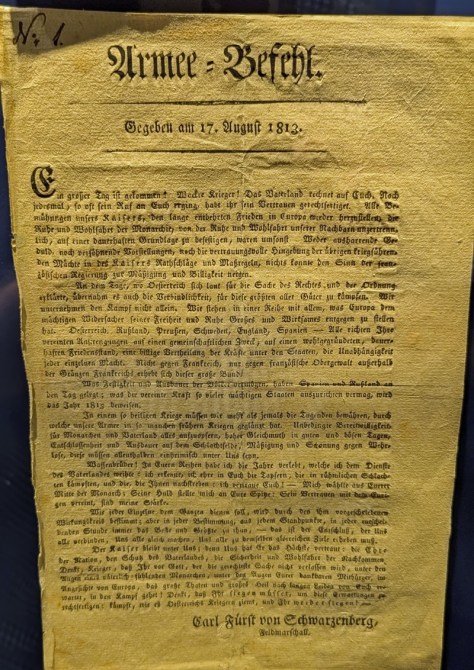 Nr. 1.
Armee-Befehl.
Gegeben am 17. August 1813.
Ein großer Tag ist gekommen! Wackre Krieger! Das Vaterland rechnet auf Euch. Noch
jedesmal, so oft sein Ruf an Euch erging, habt ihr sein Vertrauen gerechtfertiget. Alle Be-
mühungen unsers Kaisers, den lange entbehrten Frieden in Europa wieder herzustellen, die
Ruhe und Wohlfahrt der Monarchie, von der Ruhe und Wohlfahrt unserer Nachbarn unzertrenn-
lich, auf einer dauerhaften Grundlage zu befestigen, waren umsonst. Weder ausharrende Ge-
duld, noch versöhnende Vorstellungen, noch die vertrauungsvolle Hingebung der übrigen kriegführen-
den Mächte in des Kaisers Rathschläge und Maßregeln, nichts konnte den Sinn der fran-
zösischen Regierung zur Mäßigung und Billigkeit neigen.
An dem Tage, wo Oesterreich sich laut für die Sache des Rechtes und der Ordnung
erklärte, übernahm es auch die Verbindlichkeit, für diese größten aller Güter zu kämpfen. Wir
unternehmen den Kampf nicht allein. Wir stehen in einer Reihe mit allem, was Europa dem
mächtigen Widersacher seiner Freiheit und Ruhe Großes und Wirksames entgegen zu stellen
hat. Oesterreich, Rußland, Preußen, Schweden, England, Spanien — Alle richten Ihre
vereinten Anstrengungen auf einen gemeinschaftlichen Zweck, auf einen wohlgegründeten, dauer-
haften Friedensstand, eine billige Vertheilung der Kräfte unter den Staaten, die Unabhängigkeit
jeder einzelnen Macht. Nicht gegen Frankreich, nur gegen französische Obergewalt außerhalb
der Gränzen Frankreichs erhebt sich dieser große Bund!
Was Festigkeit und Ausdauer der Völker vermögen, haben Spanien und Rußland an
den Tag gelegt; was die vereinte Kraft so vieler mächtigen Staaten auszurichten vermag, wird
das Jahr 1813 beweisen.
In einem so heiligen Kriege müssen wir mehr als jemals die Tugenden bewähren, durch
welche unser Armee in so manchen frühern Kriegen geglänzt hat. Unbedingte Bereitwilligkeit
für Monarchen und Vaterland alles aufzuopfern, hoher Gleichmuth in guten und bösen Tagen,
Entschlossenheit und Ausdauer auf dem Schlachtfelde, Mäßigung und Schonung gegen Wehr-
lose, diese müssen allenthalben einheimisch unter Uns seyn.
Waffenbrüder! In Euern Reihen habe ich die Jahre verlebt, welche ich dem Dienste
des Vaterlandes weihte; ich erkenne, ich ehre in Euch die Tapfern, die in rühmlichen Schlach-
ten kämpften, und die, die Ihnen nachstreben; ich vertraue Euch! — Mich wählte aus Eurer
Mitte der Monarch; Seine Huld stellte mich an Eure Spitze: Sein Vertrauen mit dem Euri-
gen vereint, sind meine Stärke.
Wie jeder Einzelne dem Ganzen dienen soll, wird durch den ihm vorgeschriebenen
Wirkungskreis bestimmt; aber in jeder Bestimmung, auf jedem Standpunkte, in jeder entschei-
denden Stunde immer das Beste und Größte zu thun, — das ist der Entschluß, der Uns
alle verbinden, Uns alle gleich machen, Uns alle zu demselben glorreichen Ziele erheben muß.
Der Kaiser bleibt unter Uns; denn Uns hat Er das Höchste vertraut; die Ehre
der Nation, den Schutz des Vaterlandes, die Sicherheit und Wohlfahrt der Nachkommen.
Denket, Krieger, daß Ihr vor Gott, der die gerechteste Sache nicht verlassen wird, unter den
Augen eines väterlich-fühlenden Monarchen, unter den Augen Eurer dankbaren Mitbürger, im
Angesicht von Europa, das große Thaten und großes Heil nach langen Leiden von Euch er-
wartet, in den Kampf gehet! Denkt, daß Ihr siegen müsset, um diese Erwartungen zu
rechtfertigen; kämpft, wie es Oesterreichs Kriegern ziemt, und Ihr werdet siegen! —
Carl Fürst von Schwarzenberg,
Feldmarschall.